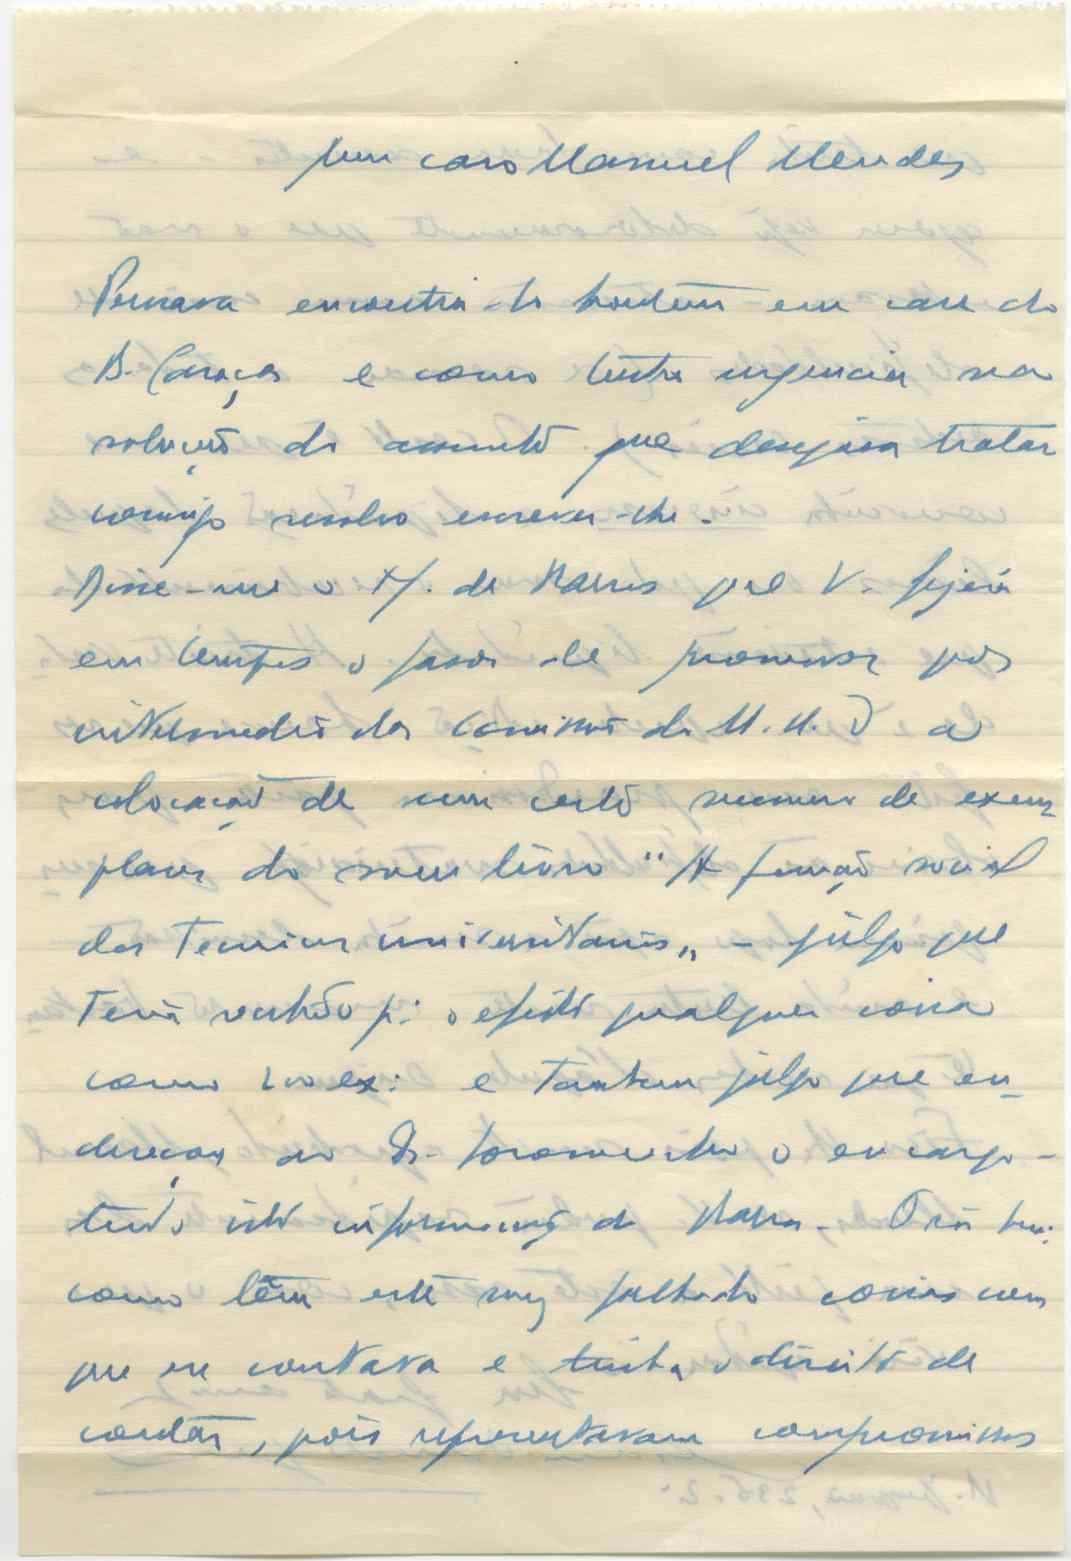 Meu caro Manuel Mendes
Pensava encontra-lo hontem em casa do
B. Caraça e como tenho urgencia na
solução do assunto que desejava tratar
comigo resolvo escrever-lhe.
Disse-me o H. de Barros que V. fizera
em tempos o favor de promover por
intermedio da Comissão do M. U. D a
colocação de um certo numero de exem
plares do seu livro "A função social
dos Tecnicos universitarios" - julgo que
Teria recebido p: o efeito qualquer coisa
como 200 ex: e tambem julgo que en-
dereçou ao Dr. o encargo -
tudo isto informações do Barros - Ora
como têm este mez falhado coisas com
que eu contava e tinha o direito de
contar, pois representavam compromissos